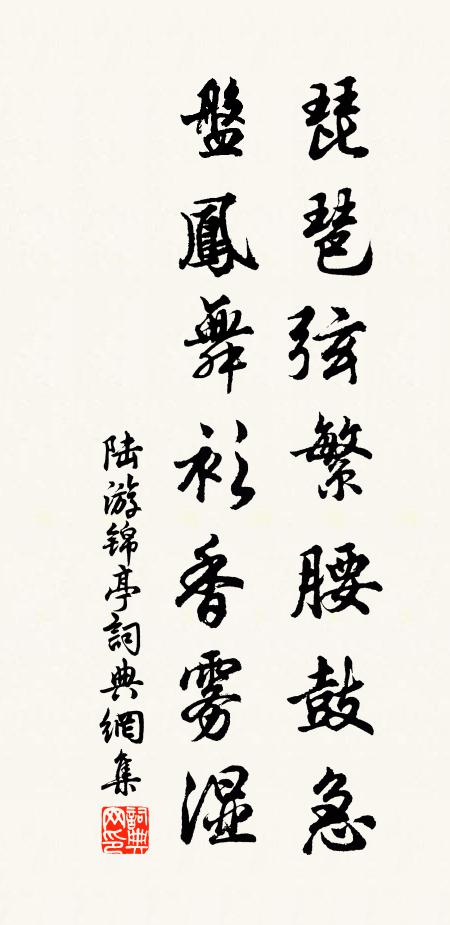 琵琶弦繁腰鼓急
盤鳳舞衫香霧湿
陆游锦亭詞典網集
詞典网印